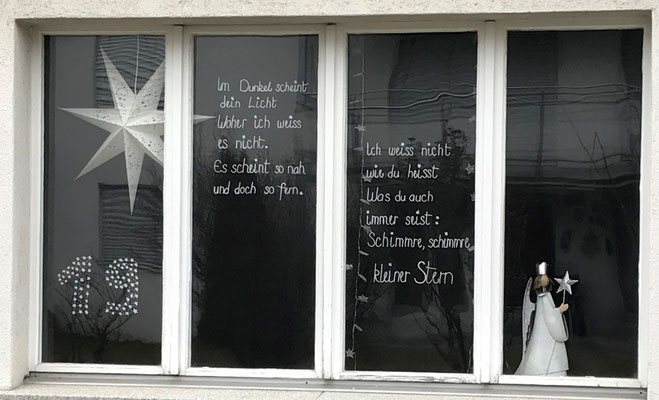 Im Dunkel scheint
dein Licht
Woher ich weiss
es nicht.
Es scheint so nah
und doch so fern.
Ich weiss nicht
wie du heisst
Was du auch
immer seist:
Schimmre, schimmre
kleiner Stern
19